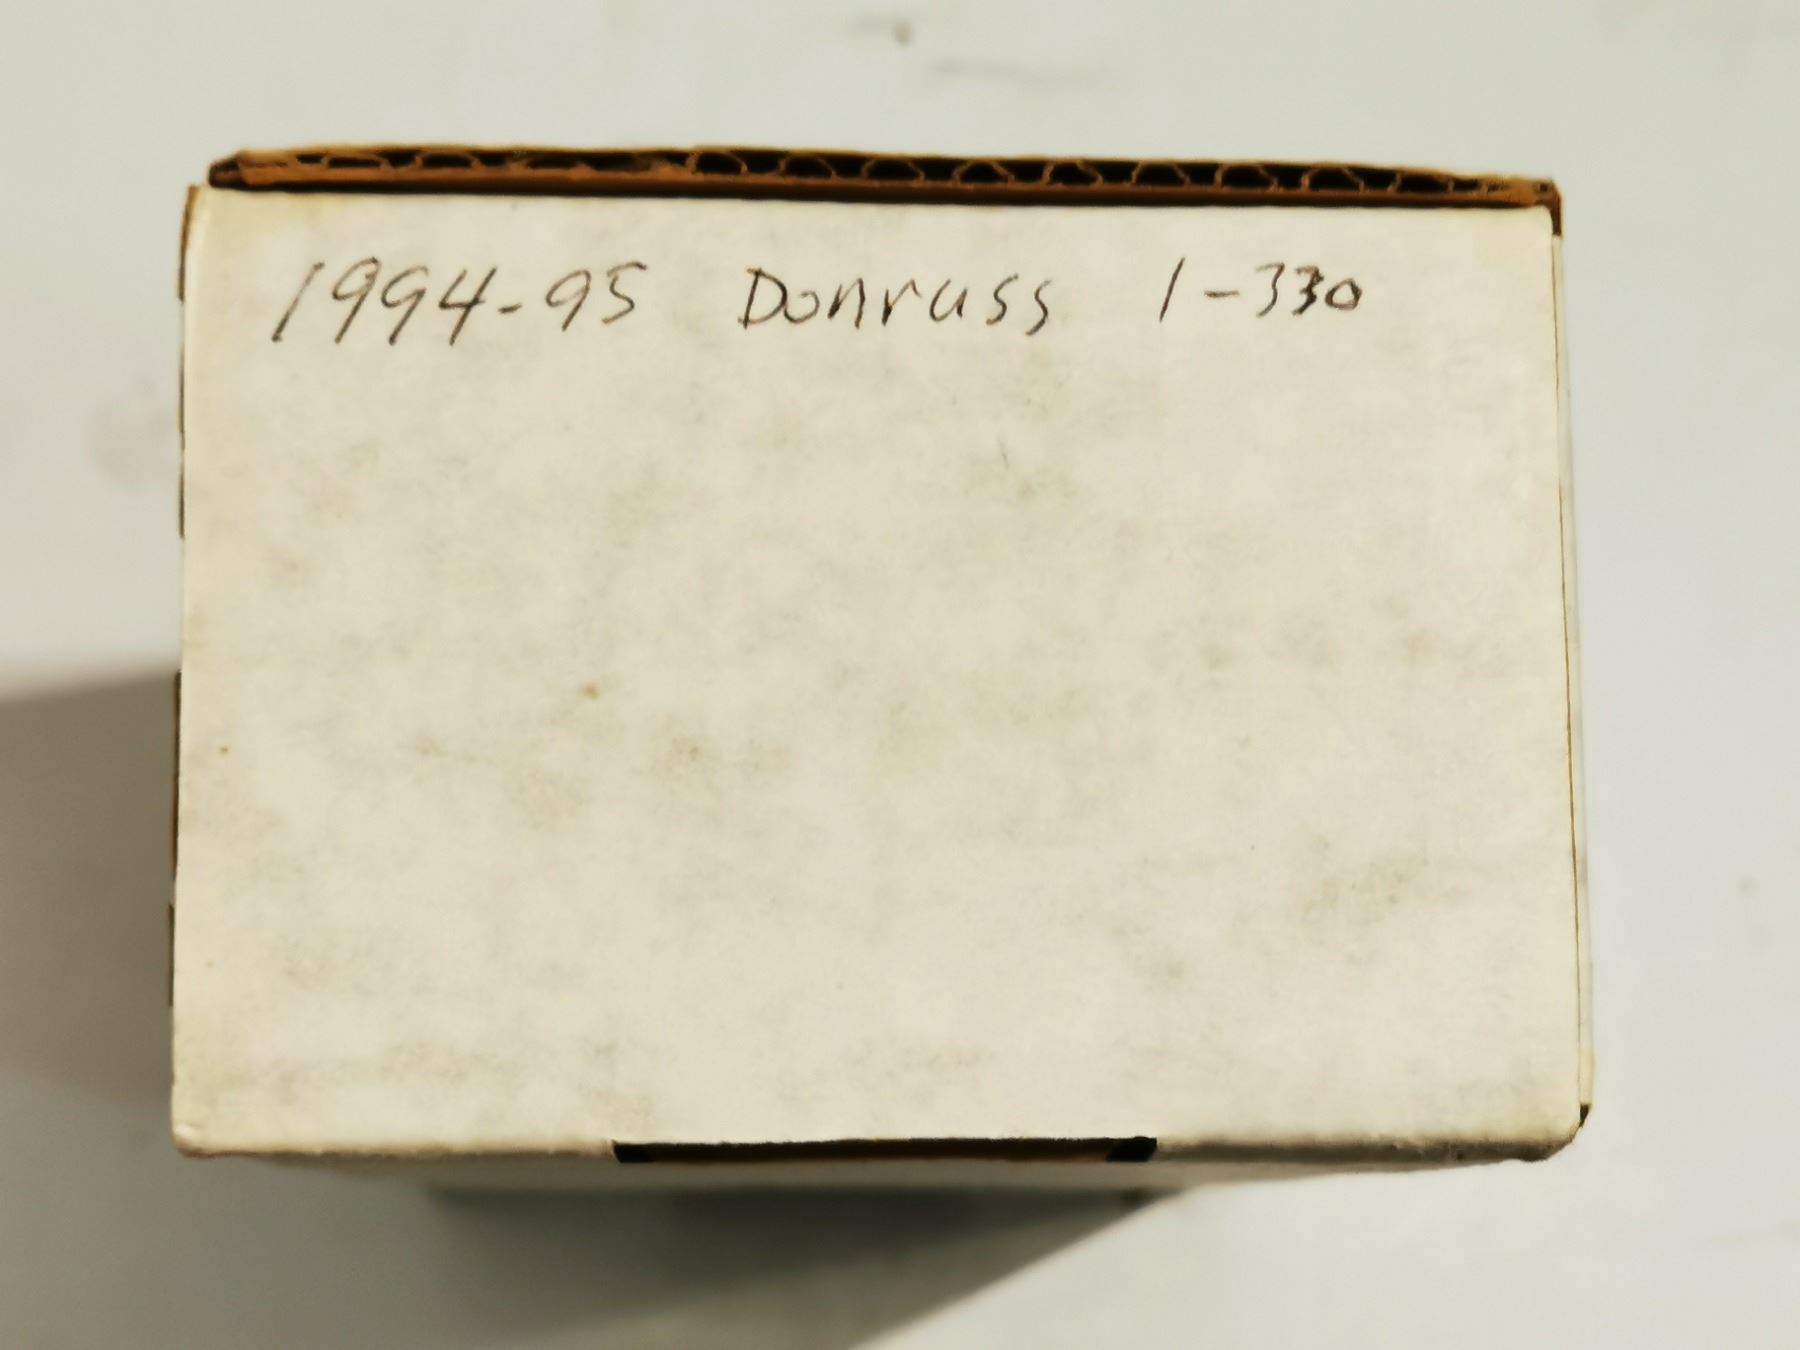 1994-95 Donruss 1-330